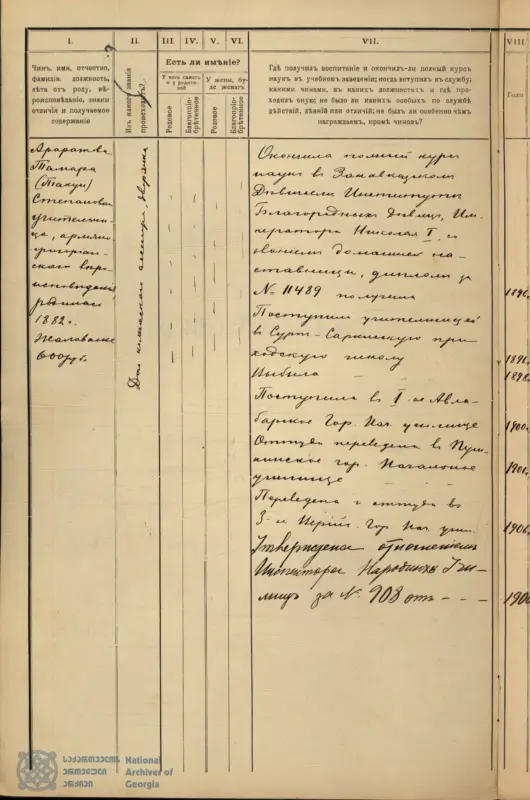 I.
II.
III.
IV.
V.
VI.
VII.
VIII.
Чинъ, имя, отчество,
фамилія, должность,
лѣта отъ роду, вѣ-
роисповѣданіе, знаки
отличія и получаемое
содержаніе
Изъ какого званія
происходитъ?
Есть ли имѣніе?
У него самого
и у родите-
лей
У жены, бу-
де женатъ
Родовое
Благопріо-
брѣтенное
Родовое
Благопріо-
брѣтенное
Гдѣ получилъ воспитаніе и окончилъ-ли полный курсъ
наукъ въ учебномъ заведеніи; когда вступилъ въ службу;
какими чинами, въ какихъ должностяхъ и гдѣ про-
ходилъ оную; не было ли какихъ особыхъ по службѣ
дѣяній или отличій; не былъ ли особенно чѣмъ
награждаемъ, кромѣ чиновъ?
Годы
Тамара
(Такуи)
Степановна
учительни-
ца, армяно-
григоріан-
скаго вѣро-
исповѣданія
родилась
1882 г.
Жалованье
600 р.
Окончила полный курсъ
наукъ въ Закавказскомъ
Дѣвичьемъ Институтѣ
Благородныхъ дѣвицъ, Им-
ператора Николая I, со
званіемъ домашней на-
ставницы, дипломъ за
№ 11489 получила
1896
Поступила учительницей
въ Сурпъ-Саркисскую при-
ходскую школу
1896
Выбыла
1898
Поступила въ I-ое Авла-
барское Гор. Нач. училище
1900
Оттуда переведена въ Пуш-
кинское гор. Начальное
1901
училище
Переведена и оттуда въ
3-е Гор. Нач. учил.
1906
Утверждена отношеніемъ
Инспектора Народныхъ Учи-
лищъ за № 908 отъ - - -
საქართველოს
ეროვნული
არქივი
National
Archives of
Georgia